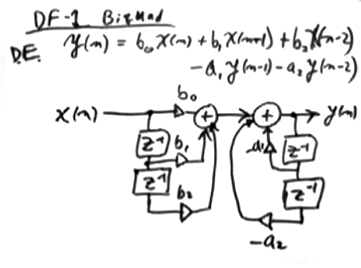 DF-1 Biquad
DE. y(n) = b₀ x(n) + b₁ x(n-1) + b₂ x(n-2)
- a₁ y(n-1) - a₂ y(n-2)
x(n) b₀ + + y(n)
z⁻¹ b₁ -a₁ z⁻¹
z⁻¹ b₂ z⁻¹
-a₂